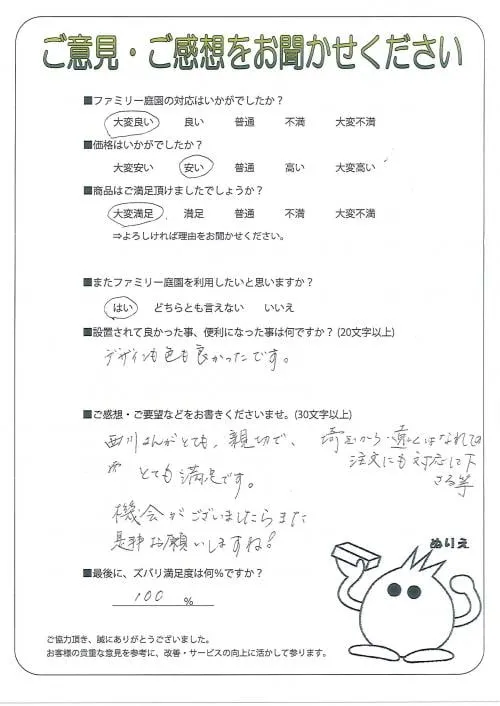 ご意見・ご感想をお聞かせください
■ファミリー庭園の対応はいかがでしたか？
大変良い 良い 普通 不満 大変不満
■価格はいかがでしたか？
大変安い 安い 普通 高い 大変高い
■商品はご満足頂けましたでしょうか？
大変満足 満足 普通 不満 大変不満
⇒よろしければ理由をお聞かせください。
■またファミリー庭園を利用したいと思いますか？
はい どちらとも言えない いいえ
■設置されて良かった事、便利になった事は何ですか？(20文字以上)
デザインも色も良かったです。
■ご感想・ご要望などをお書きくださいませ。(30文字以上)
西川さんがとても、親切で、
とても満足です。
埼玉から遠くはなれて
注文にも対応して下
さる等
機会がございましたらまた
是非お願いしますね！
ぬりえ
■最後に、ズバリ満足度は何％ですか？
100 ％
ご協力頂き、誠にありがとうございました。
お客様の貴重な意見を参考に、改善・サービスの向上に活かして参ります。